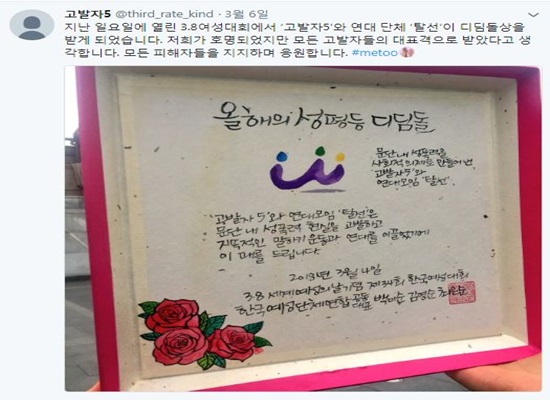 고발자5 @third_rate_kind · 3월 6일
지난 일요일에 열린 3.8여성대회에서 ‘고발자5’와 연대 단체 ‘탈선’이 디딤돌상을
받게 되었습니다. 저희가 호명되었지만 모든 고발자들의 대표격으로 받았다고 생
각합니다. 모든 피해자들을 지지하며 응원합니다. #metoo
올해의 성평등 디딤돌
문단 내 성폭력을
사회적 의제로 만들어 낸
'고발자 5'와
연대모임 '탈선'
'고발자 5'와 연대모임 '탈선'은
문단 내 성폭력 현실을 고발하고
지속적인 말하기 운동과 연대를 이끌었기에
이 패를 드립니다
2018년 3월 4일
3.8 세계여성의날기념 제34회 한국여성대회
한국여성단체연합 공동대표